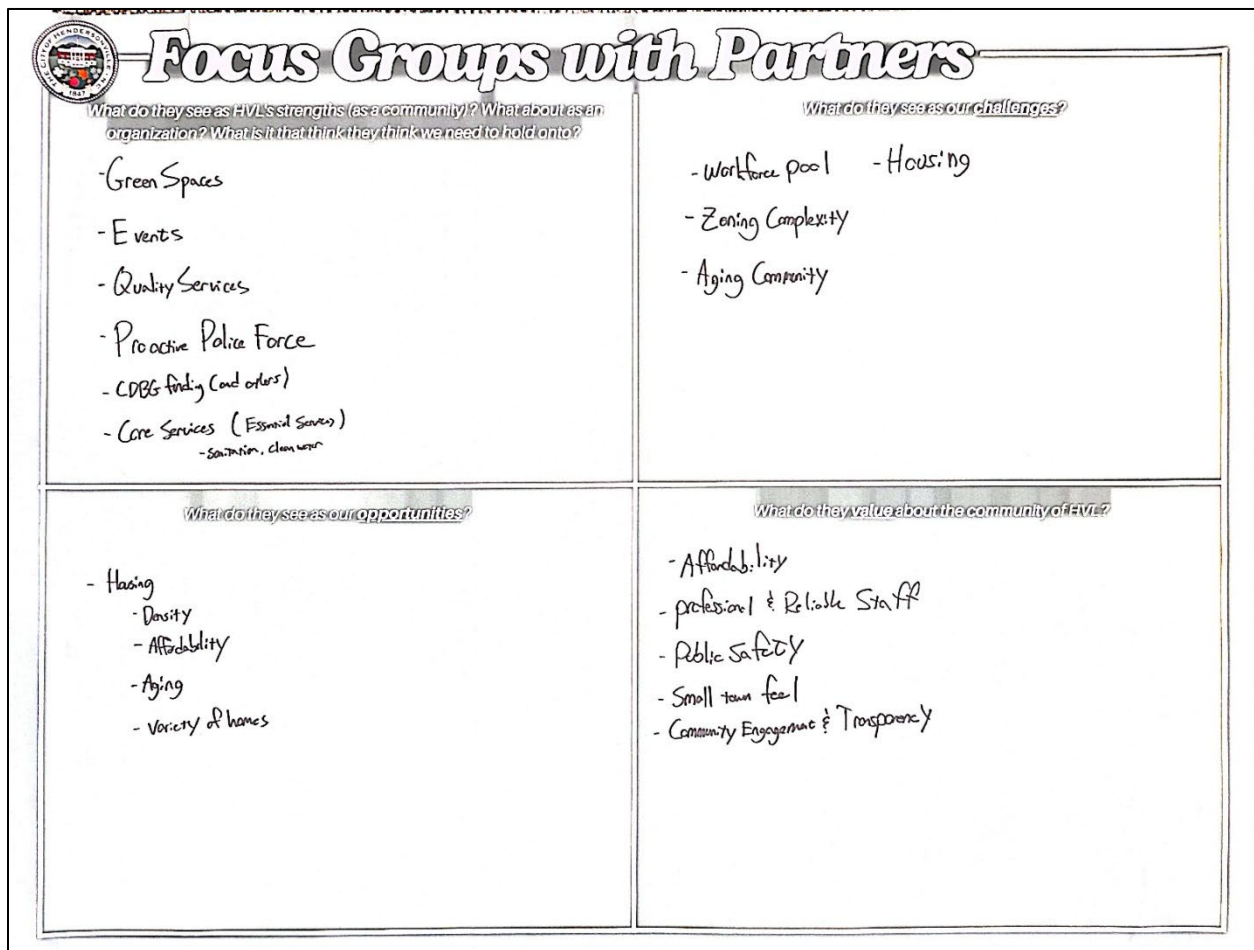 THE CITY OF HENDERSONVILLE, N.C.
1847
Focus Groups with Partners
What do they see as HVL's strengths (as a community)? What about as an
organization? What is it that think they think we need to hold onto?
- Green Spaces
- Events
- Quality Services
- Proactive Police Force
- CDBG funding (and others)
- Core Services (Essential Services)
- Sanitation, clean water
What do they see as our challenges?
- Workforce pool - Housing
- Zoning Complexity
- Aging Community
What do they see as our opportunities?
- Housing
- Density
- Affordability
- Aging
- Variety of homes
What do they value about the community of HVL?
- Affordability
- professional & Reliable Staff
- Public Safety
- Small town feel
- Community Engagement & Transparency